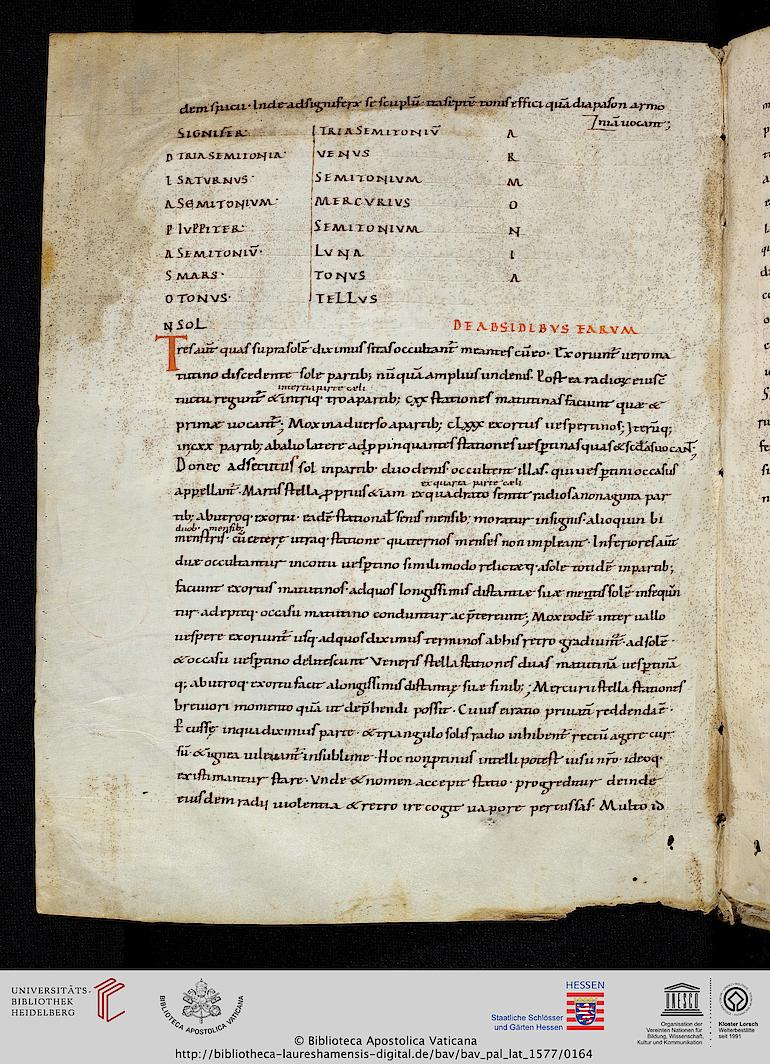 dem spacii · Inde ad signiferꝝ sescuplū · ita septē tonis effici quā diapason armo
niā uocant;
SIGNIFER · TRIA SEMITONIŪ A
D TRIA SEMITONIA · VENUS R
I SATURNUS · SEMITONIUM M
A SEMITONIUM · MERCURIUS O
P IUPPITER · SEMITONIUM N
A SEMITONIŪ · LUNA I
S MARS · TONUS A
O TONUS · TELLUS
N SOL DE ABSIDIBUS EARUM
Tres aūt quas supra solē diximus sitas occultant̄ meantes cū eo · Exoriunt̄ uero ma
tutino discedente sole partib; nūquā amplius undenis · Postea radioꝝ eiusc̄
in tertia parte cæli
tactu regunt̄ & in triq̄tro a partib; cxx stationes matutinas faciunt quæ &
primæ uocant̄; Mox in aduerso a partib; clxxx exortus uespertinos; Iterūq;
in cxx partib; ab alio latere adppinquantes stationes uesptinas quas & scdas uocant̄;
Donec adsecutus sol in partib · duodenis occultent illas · qui uesptini occasus
ex quarta parte cæli
appellant̄ · Martis stella ꝓprius & iam ex quadrato sentit radios a nonaginta par
tib; ab utroq · exortu · eadē stational̄ senis mensib; moratur insignis · alioquin bi
duob · mensib;
menstris · cū ceteræ utraq · statione quaternos menses non impleant · Inferiores aūt
duæ occultantur in coitu uesptino simili modo relictæq · a sole totidē in partib;
faciunt exortus matutinos · ad quos longissimis distantiæ suæ metis solē insequun
tur · adeptæq · occasu matutino conduntur ac p̄tereunt; Mox eodē interuallo
uespere exoriunt̄ usq · ad quos diximus terminos ab his retro gradiunt̄ · ad solē ·
& occasu uesptino delitescunt Veneris stella stationes duas matutinā uesptinā
q; ab utroq · exortu facit a longissimis distantię suæ finib; ; Mercurii stella stationes
breuiori momento quā ut dep̄hendi possit · Cuius ei ratio priuatī reddenda ē ·
in qua diximus parte · & triangulo solis radio inhibent̄ rectū agere cur
sū · & ignea ui leuant̄ in sublime · Hoc non ptinus intelli potest uisu nr̄o · ideoq ·
existimantur stare · Vnde & nomen accepit statio · progreditur deinde
eiusdem radii uiolentia & retro ire cogit uapore percussas · Multo id
UNIVERSITÄTS-
BIBLIOTHEK
HEIDELBERG
BIBLIOTHECA APOSTOLICA VATICANA
HESSEN
Staatliche Schlösser
und Gärten Hessen
UNESCO
Organisation der
Vereinten Nationen für
Bildung, Wissenschaft,
Kultur und Kommunikation
Kloster Lorsch
Welterbestätte
seit 1991
© Biblioteca Apostolica Vaticana
http://bibliotheca-laureshamensis-digital.de/bav/bav_pal_lat_1577/0164